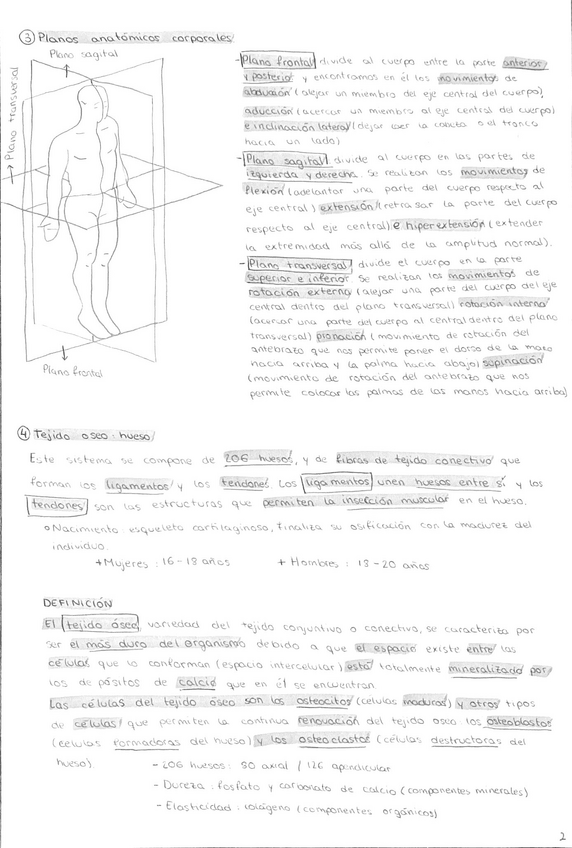 ③ Planos anatómicos corporales
Plano sagital
→ Plano transversal
Plano frontal
- Plano frontal divide al cuerpo entre la parte anterior
y posterior y encontramos en él los movimientos de
abducción (alejar un miembro del eje central del cuerpo)
aducción (acercar un miembro al eje central del cuerpo)
e inclinación lateral (dejar caer la cabeza o el tronco
hacia un lado)
- Plano sagital divide al cuerpo en las partes de
izquierda y derecha. Se realizan los movimientos de
flexión (adelantar una parte del cuerpo respecto al
eje central) extensión (retrasar la parte del cuerpo
respecto al eje central) e hiperextensión (extender
la extremidad más allá de la amplitud normal).
- Plano transversal divide el cuerpo en la parte
superior e inferior se realizan los movimientos de
rotación externa (alejar una parte del cuerpo del eje
central dentro del plano transversal) rotación interna
(acercar una parte del cuerpo al central dentro del plano
transversal) pronación (movimiento de rotación del
antebrazo que nos permite poner el dorso de la mano
hacia arriba y la palma hacia abajo) supinación
(movimiento de rotación del antebrazo que nos
permite colocar las palmas de las manos hacia arriba)
④ Tejido oseo: hueso
Este sistema se compone de 206 huesos, y de fibras de tejido conectivo que
forman los ligamentos y los tendones. Los ligamentos unen huesos entre sí y los
tendones son las estructuras que permiten la inserción muscular en el hueso.
o Nacimiento: esqueleto cartilaginoso, finaliza su osificación con la madurez del
individuo.
+ Mujeres: 16-18 años + Hombres: 18-20 años
DEFINICIÓN
El tejido óseo, variedad del tejido conjuntivo o conectivo, se caracteriza por
ser el más duro del organismo debido a que el espacio existe entre las
células que lo conforman (espacio intercelular) está totalmente mineralizado por
los depósitos de calcio que en él se encuentran
Las células del tejido óseo son los osteocitos (celulas maduras) y otros tipos
de células que permiten la continua renovación del tejido oseo los osteoblastos
(celulas formadoras del hueso) y los osteoclastos (células destructoras del
hueso)
- 206 huesos: 80 axial / 126 apendicular
- Dureza: fosfato y carbonato de calcio (componentes minerales)
- Elasticidad: colágeno (componentes orgánicos)
2